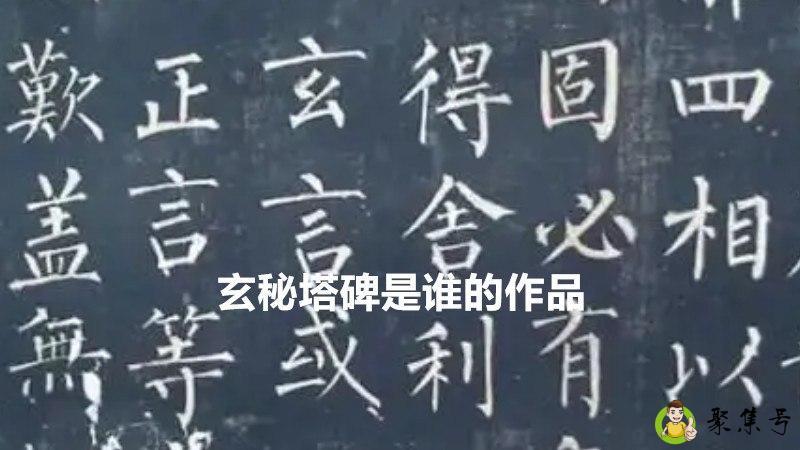 四相以
固必有
得舍利
玄言或
正言等
歎盖無
玄秘塔碑是谁的作品
聚集号